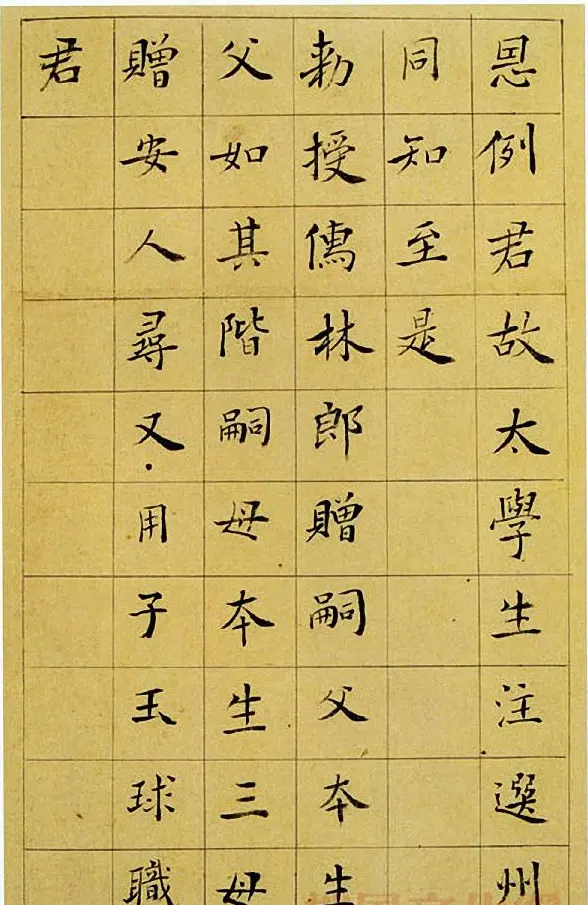 恩例君故太學生注選州
同知至是
勅授儒林郎贈嗣父本生
父如其階嗣母本生三母
贈安人尋又用子玉球職
君